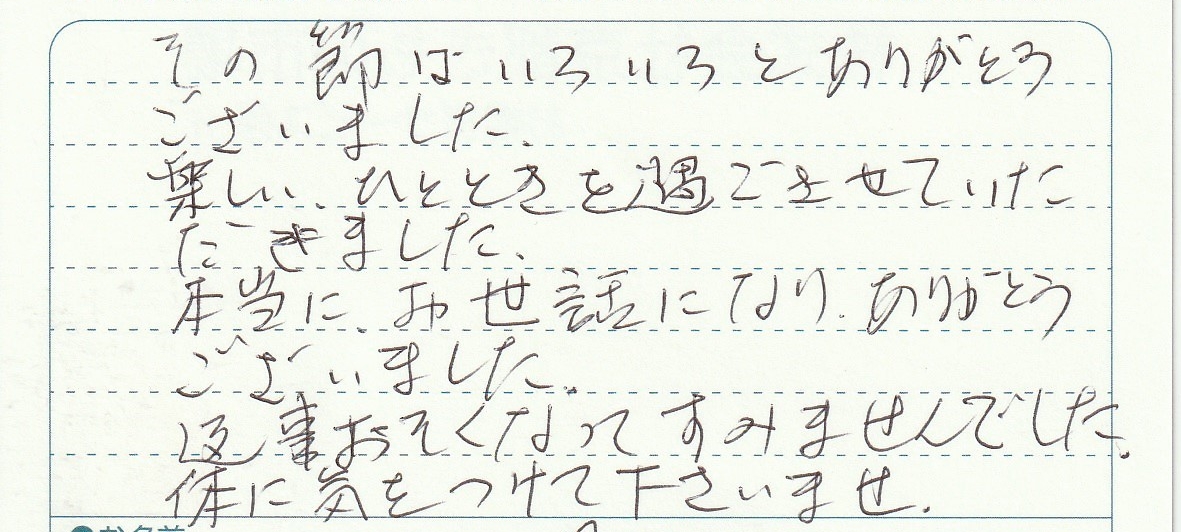 その節はいろいろとありがとう
ございました.
楽しい、ひとときを過ごさせていた
だきました.
本当に、お世話になり、ありがとう
ございました.
返事おそくなってすみませんでした.
体に気をつけて下さいませ.